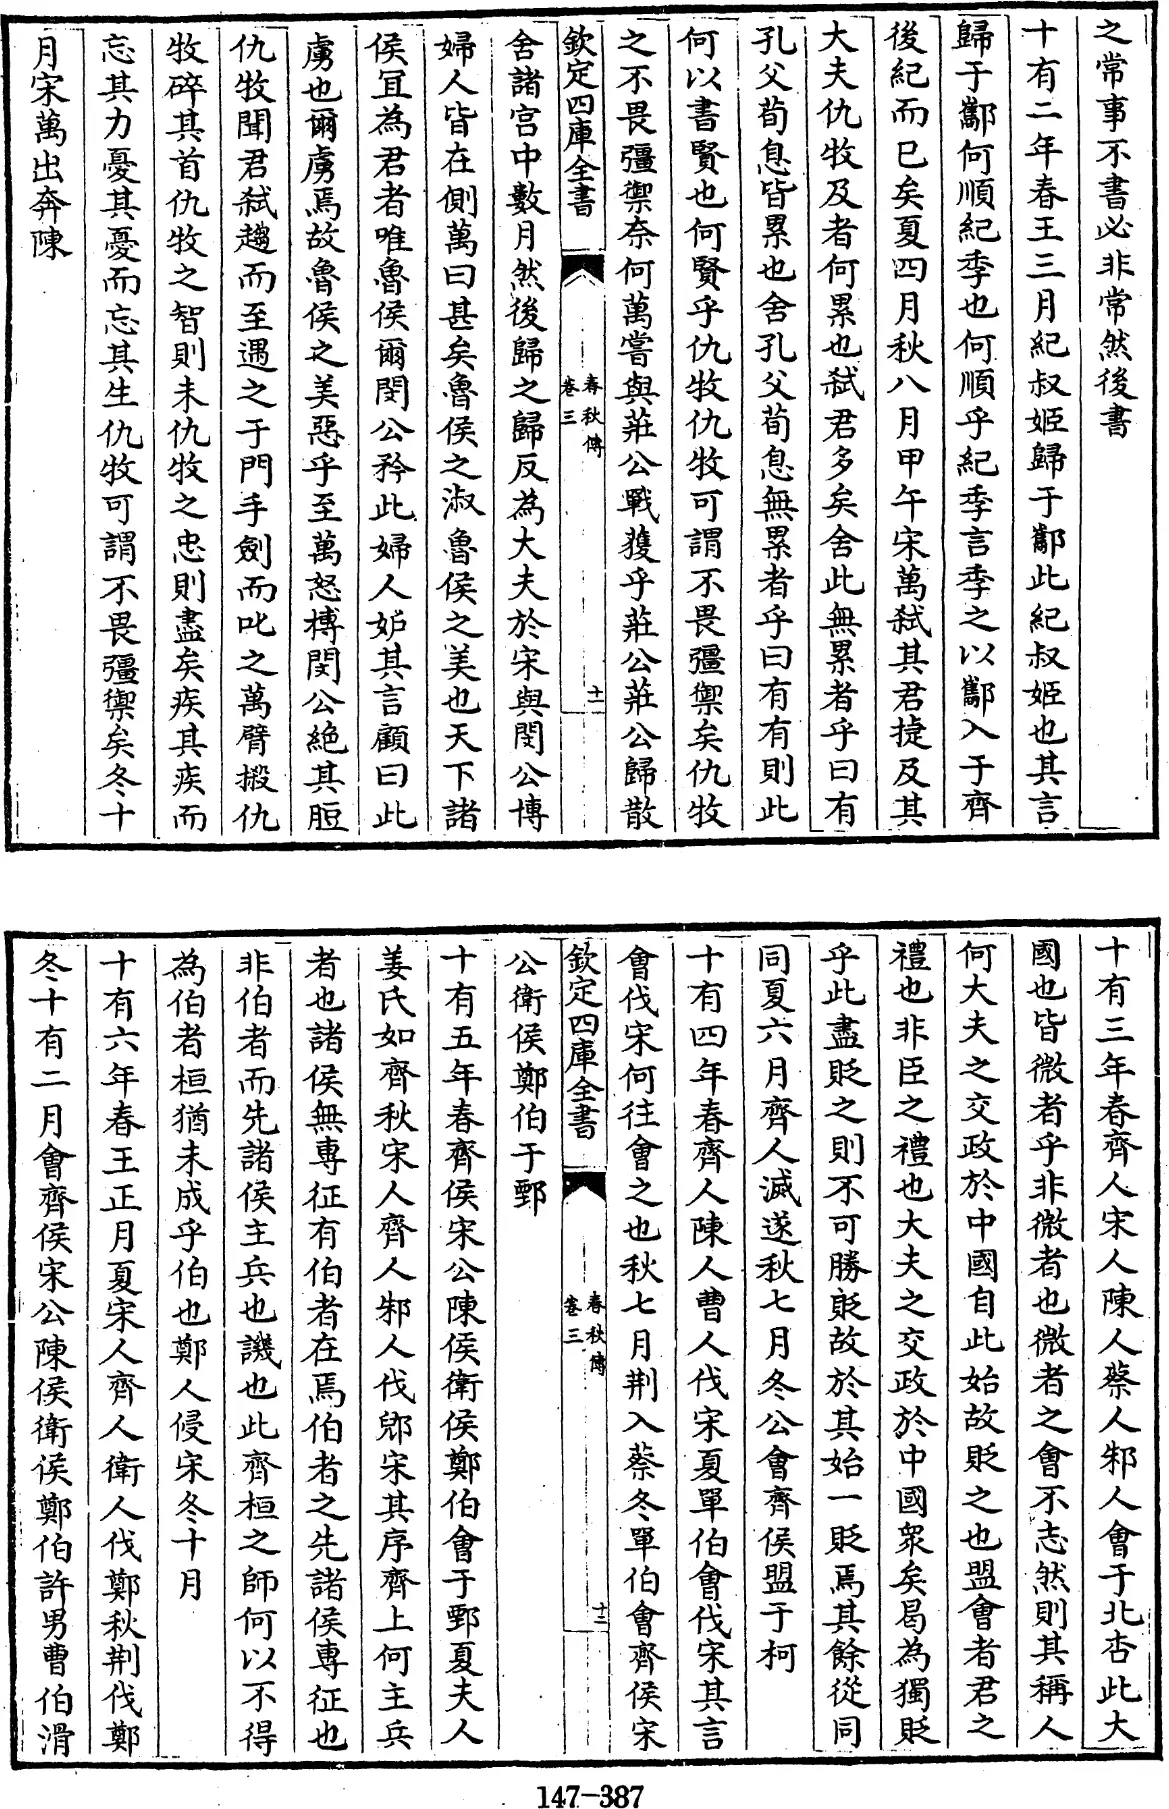 之常事不書必非常然後書
十有二年春王三月紀叔姬歸于酅此紀叔姬也其言
歸于酅何順紀季也何順乎紀季言季之以酅入于齊
後紀而已矣夏四月秋八月甲午宋萬弑其君捷及其
大夫仇牧及者何累也弑君多矣舍此無累者乎曰有
孔父荀息皆累也舍孔父荀息無累者乎曰有有則此
何以書賢也何賢乎仇牧仇牧可謂不畏彊禦矣仇牧
之不畏彊禦奈何萬嘗與莊公戰獲乎莊公莊公歸散
欽定四庫全書
春秋傳
卷三
十一
舍諸宫中數月然後歸之歸反為大夫於宋與閔公博
婦人皆在側萬曰甚矣魯侯之淑魯侯之美也天下諸
侯宜為君者唯魯侯爾閔公矜此婦人妒其言顧曰此
虜也爾虜焉故魯侯之美惡乎至萬怒搏閔公絶其脰
仇牧聞君弑趨而至遇之于門手劍而叱之萬臂摋仇
牧碎其首仇牧之智則未仇牧之忠則盡矣疾其疾而
忘其力憂其憂而忘其生仇牧可謂不畏彊禦矣冬十
月宋萬出奔陳
十有三年春齊人宋人陳人蔡人邾人會于北杏此大
國也皆微者乎非微者也微者之會不志然則其稱人
何大夫之交政於中國自此始故貶之也盟會者君之
禮也非臣之禮也大夫之交政於中國衆矣曷為獨貶
乎此盡貶之則不可勝貶故於其始一貶焉其餘從同
同夏六月齊人滅遂秋七月冬公會齊侯盟于柯
十有四年春齊人陳人曹人伐宋夏單伯會伐宋其言
會伐宋何往會之也秋七月荆入蔡冬單伯會齊侯宋
欽定四庫全書
春秋傳
卷三
十二
公衛侯鄭伯于鄄
十有五年春齊侯宋公陳侯衛侯鄭伯會于鄄夏夫人
姜氏如齊秋宋人齊人邾人伐郳宋其序齊上何主兵
者也諸侯無專征有伯者在焉伯者之先諸侯專征也
非伯者而先諸侯主兵也譏也此齊桓之師何以不得
為伯者桓猶未成乎伯也鄭人侵宋冬十月
十有六年春王正月夏宋人齊人衛人伐鄭秋荆伐鄭
冬十有二月會齊侯宋公陳侯衛侯鄭伯許男曹伯滑
147-387